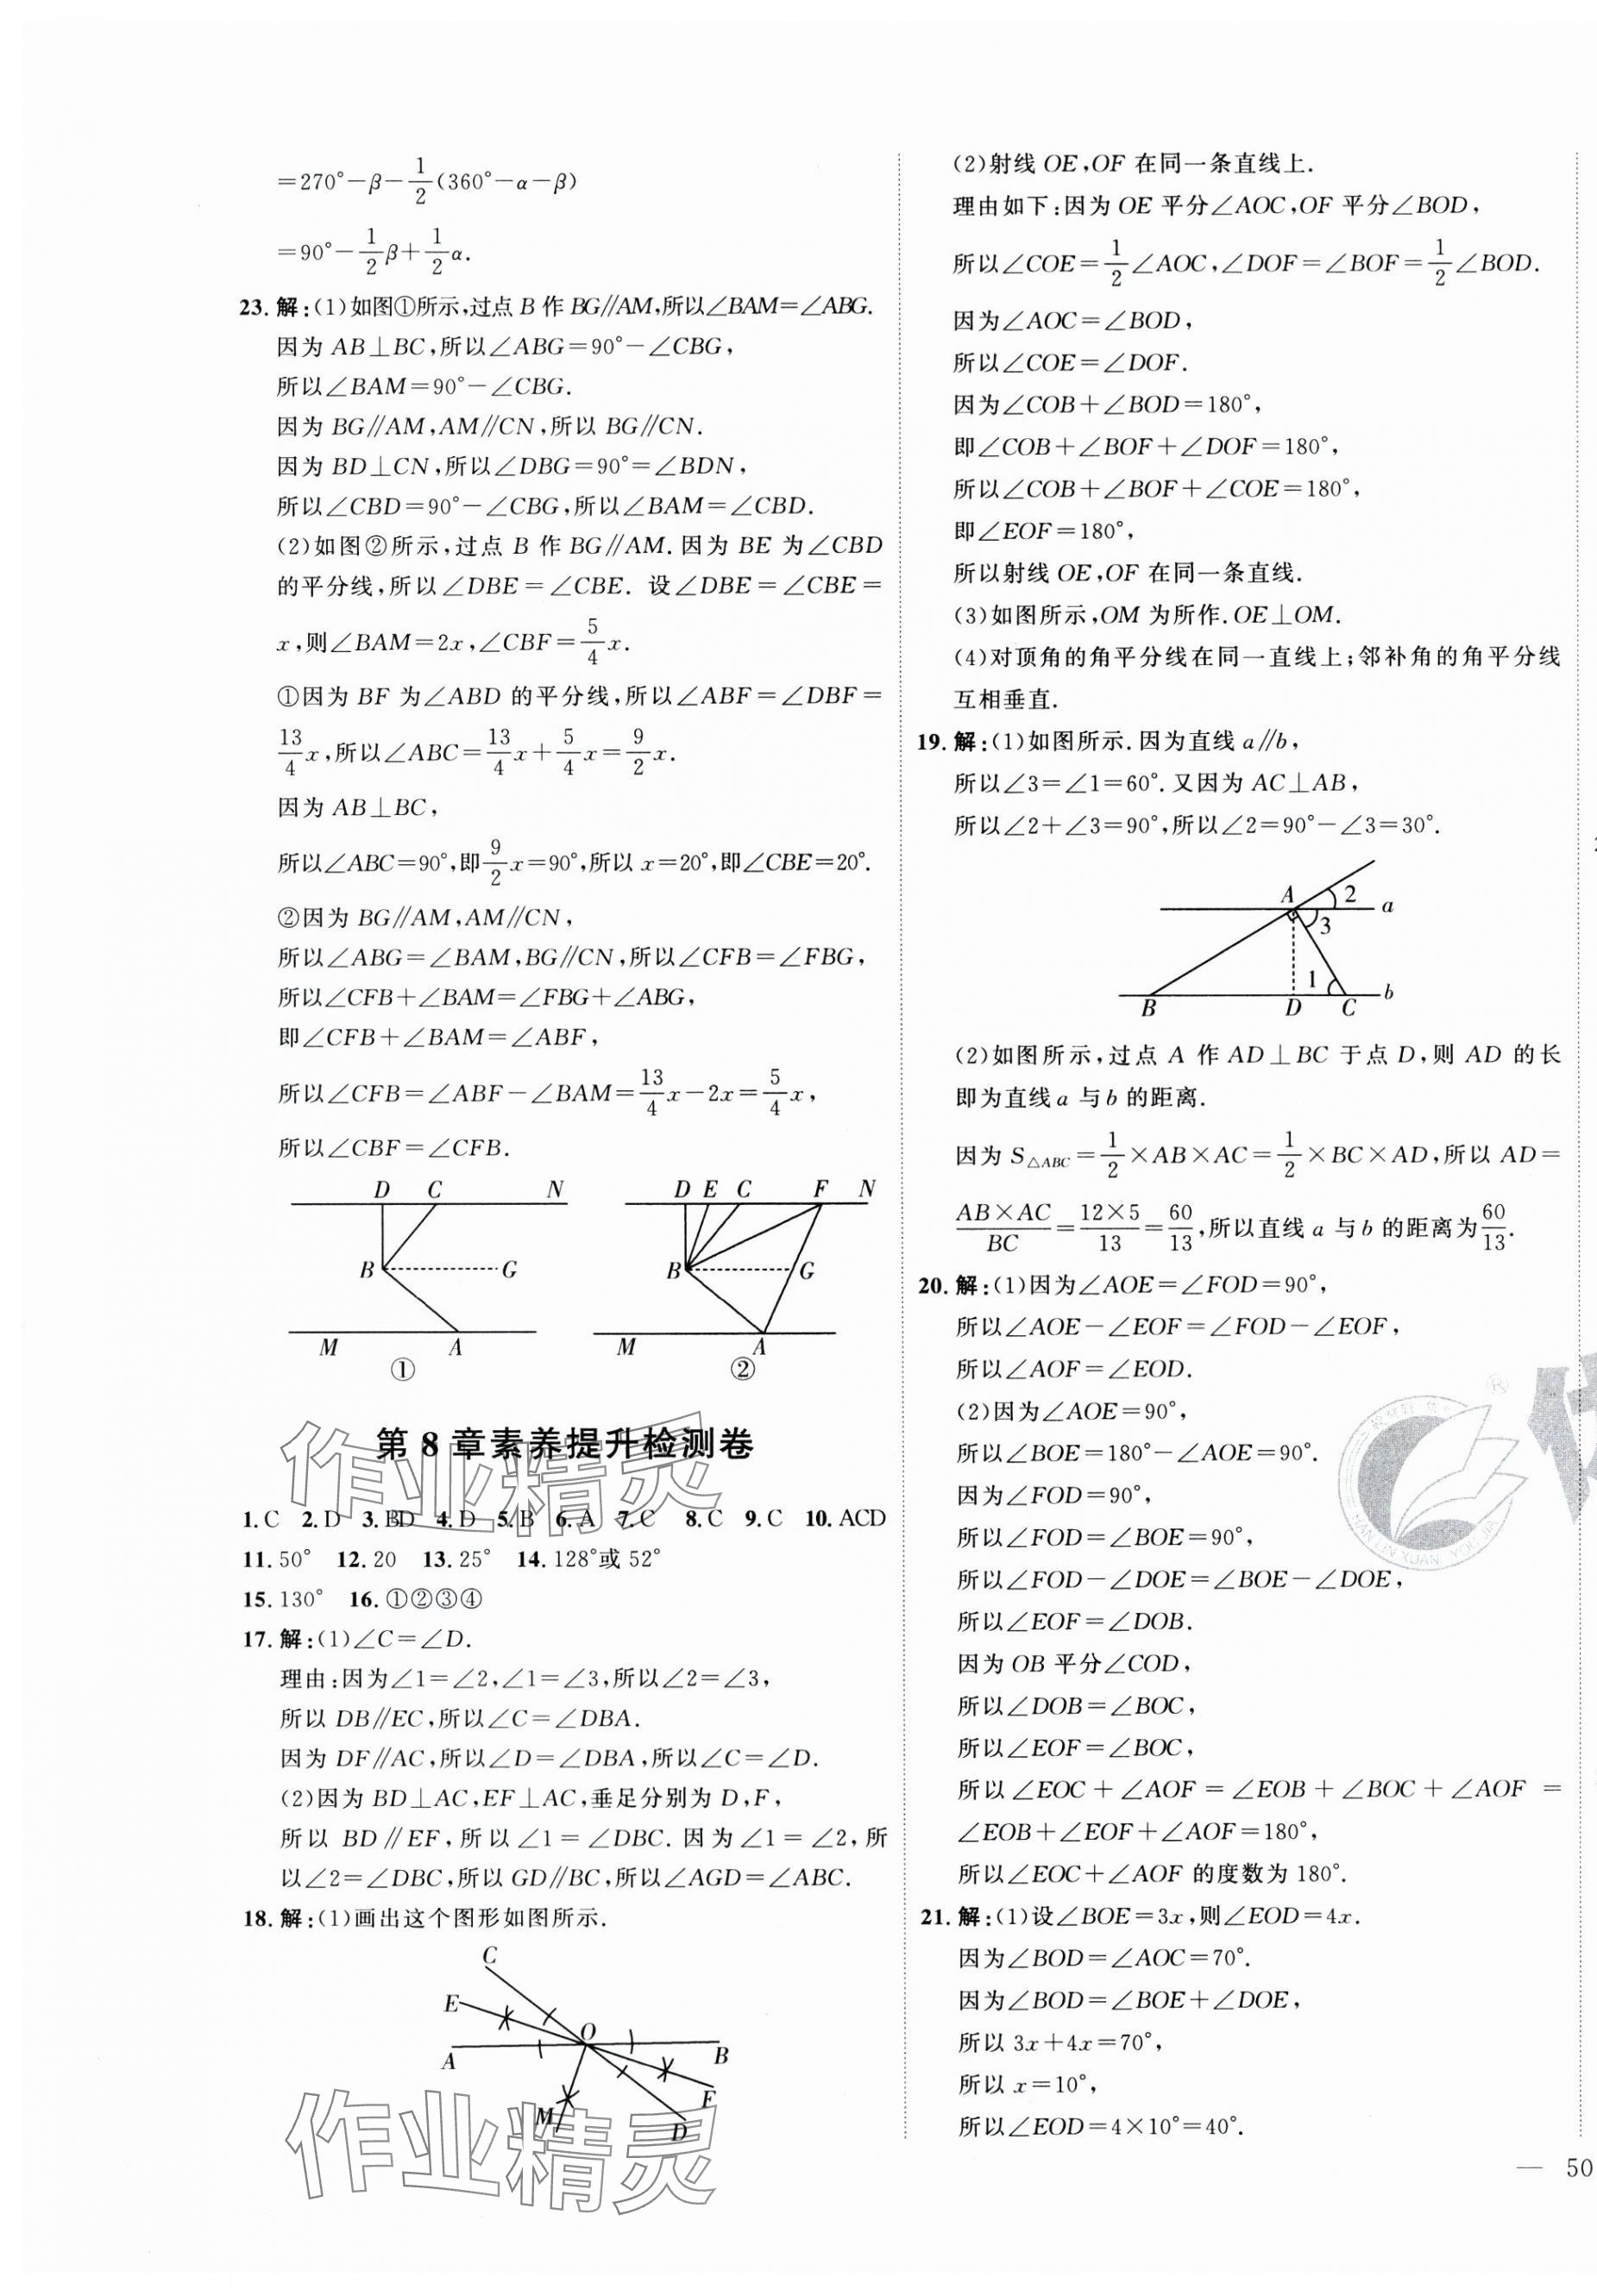 =270°-β-1/2(360°-α-β)
=90°-1/2β+1/2α.
23. 解:(1)如图①所示,过点 B 作 BG∥AM,所以∠BAM=∠ABG.
因为 AB⊥BC,所以∠ABG=90°-∠CBG,
所以∠BAM=90°-∠CBG.
因为 BG∥AM,AM∥CN,所以 BG∥CN.
因为 BD⊥CN,所以∠DBG=90°=∠BDN,
所以∠CBD=90°-∠CBG,所以∠BAM=∠CBD.
(2)如图②所示,过点 B 作 BG∥AM.因为 BE 为∠CBD
的平分线,所以∠DBE=∠CBE. 设∠DBE=∠CBE=
x,则∠BAM=2x,∠CBF=5/4x.
①因为 BF 为∠ABD 的平分线,所以∠ABF=∠DBF=
13/4x,所以∠ABC=13/4x+5/4x=9/2x.
因为 AB⊥BC,
所以∠ABC=90°,即9/2x=90°,所以 x=20°,即∠CBE=20°.
②因为 BG∥AM,AM∥CN,
所以∠ABG=∠BAM,BG∥CN,所以∠CFB=∠FBG,
所以∠CFB+∠BAM=∠FBG+∠ABG,
即∠CFB+∠BAM=∠ABF,
所以∠CFB=∠ABF-∠BAM=13/4x-2x=5/4x,
所以∠CBF=∠CFB.
D C N
B G
M A
①
D E C F N
B G
M A
②
第 8 章素养提升检测卷
1.C 2.D 3.BD 4.D 5.B 6.A 7.C 8.C 9.C 10.ACD
11.50° 12.20 13.25° 14.128°或 52°
15.130° 16.①②③④
17. 解:(1)∠C=∠D.
理由:因为∠1=∠2,∠1=∠3,所以∠2=∠3,
所以 DB∥EC,所以∠C=∠DBA.
因为 DF∥AC,所以∠D=∠DBA,所以∠C=∠D.
(2)因为 BD⊥AC,EF⊥AC,垂足分别为 D,F,
所以 BD∥EF,所以∠1=∠DBC. 因为∠1=∠2,所
以∠2=∠DBC,所以 GD∥BC,所以∠AGD=∠ABC.
18. 解:(1)画出这个图形如图所示.
C
E
O
A B
F
M D
作业精灵
作业精灵
(2)射线 OE,OF 在同一条直线上.
理由如下:因为 OE 平分∠AOC,OF 平分∠BOD,
所以∠COE=1/2∠AOC,∠DOF=∠BOF=1/2∠BOD.
因为∠AOC=∠BOD,
所以∠COE=∠DOF.
因为∠COB+∠BOD=180°,
即∠COB+∠BOF+∠DOF=180°,
所以∠COB+∠BOF+∠COE=180°,
即∠EOF=180°,
所以射线 OE,OF 在同一条直线.
(3)如图所示,OM 为所作.OE⊥OM.
(4)对顶角的角平分线在同一直线上;邻补角的角平分线
互相垂直.
19. 解:(1)如图所示.因为直线 a∥b,
所以∠3=∠1=60°.又因为 AC⊥AB,
所以∠2+∠3=90°,所以∠2=90°-∠3=30°.
A 2 a
3
1 b
B D C
(2)如图所示,过点 A 作 AD⊥BC 于点 D,则 AD 的长
即为直线 a 与 b 的距离.
因为 S△ABC=1/2×AB×AC=1/2×BC×AD,所以 AD=
AB×AC/BC=12×5/13=60/13,所以直线 a 与 b 的距离为60/13.
20. 解:(1)因为∠AOE=∠FOD=90°,
所以∠AOE-∠EOF=∠FOD-∠EOF,
所以∠AOF=∠EOD.
(2)因为∠AOE=90°,
所以∠BOE=180°-∠AOE=90°.
因为∠FOD=90°,
所以∠FOD=∠BOE=90°,
所以∠FOD-∠DOE=∠BOE-∠DOE,
所以∠EOF=∠DOB.
因为 OB 平分∠COD,
所以∠DOB=∠BOC,
所以∠EOF=∠BOC,
所以∠EOC+∠AOF=∠EOB+∠BOC+∠AOF=
∠EOB+∠EOF+∠AOF=180°,
所以∠EOC+∠AOF 的度数为 180°.
21. 解:(1)设∠BOE=3x,则∠EOD=4x.
因为∠BOD=∠AOC=70°.
因为∠BOD=∠BOE+∠DOE,
所以 3x+4x=70°,
所以 x=10°,
所以∠EOD=4×10°=40°.
— 50